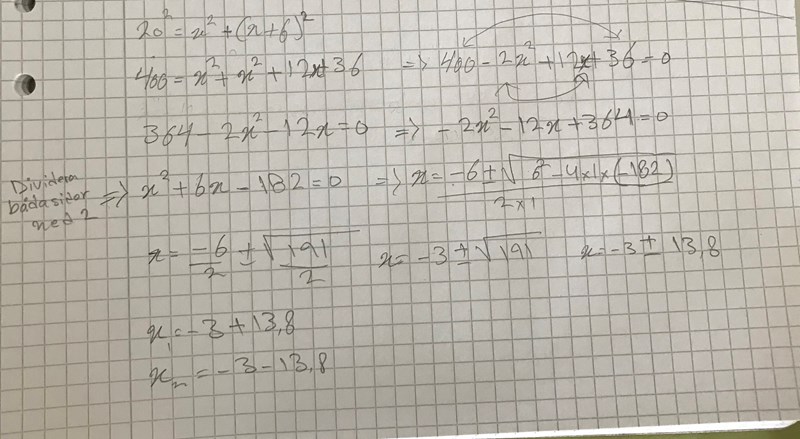 20² = x² + (x+6)²
400 = x² + x² + 12x + 36 => 400 - 2x² + 12x + 36 = 0
364 - 2x² - 12x = 0 => - 2x² - 12x + 364 = 0
Dividera
båda sidor
med 2
=> x² + 6x - 182 = 0 => x = (-6 ± √(6² - 4×1×(-182))) / (2×1)
x = -6/2 ± √191/2 x = -3 ± √191 x = -3 ± 13,8
x₁ = -3 + 13,8
x₂ = -3 - 13,8